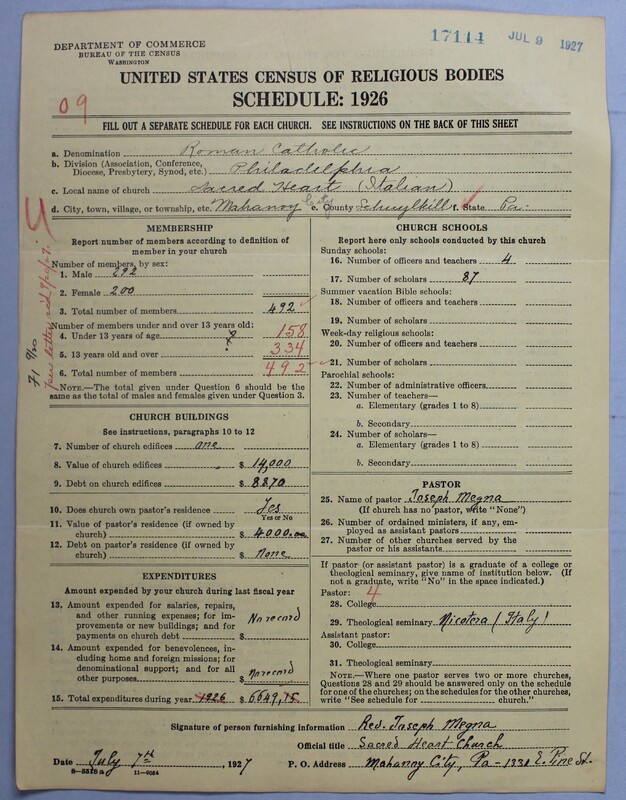 17114 JUL 9 1927
DEPARTMENT OF COMMERCE
BUREAU OF THE CENSUS
WASHINGTON
UNITED STATES CENSUS OF RELIGIOUS BODIES
SCHEDULE: 1926
09
FILL OUT A SEPARATE SCHEDULE FOR EACH CHURCH. SEE INSTRUCTIONS ON THE BACK OF THIS SHEET
a. Denomination Roman Catholic
b. Division (Association, Conference, Diocese, Presbytery, Synod, etc.) Philadelphia
c. Local name of church Sacred Heart (Italian)
d. City, town, village, or township, etc. Mahanoy City e. County Schuylkill f. State Pa.
MEMBERSHIP
Report number of members according to definition of
member in your church
Number of members, by sex:
1. Male 292
2. Female 200
3. Total number of members 492
Number of members under and over 13 years old:
4. Under 13 years of age ? 158
5. 13 years old and over ? 334
6. Total number of members 492
NOTE.—The total given under Question 6 should be
same as the total of males and females given under Question 3.
CHURCH BUILDINGS
See instructions, paragraphs 10 to 12
7. Number of church edifices one
8. Value of church edifices $ 14,000
9. Debt on church edifices $ 8870
10. Does church own pastor's residence? Yes
Yes or No
11. Value of pastor's residence (if owned by
church) $ 4000.00
12. Debt on pastor's residence (if owned by
church) $ None
EXPENDITURES
Amount expended by your church during last fiscal year
13. Amount expended for salaries, repairs,
and other running expenses; for im-
provements or new buildings; and for
payments on church debt $ No record
14. Amount expended for benevolences, in-
cluding home and foreign missions; for
denominational support; and for all
other purposes $ No record
15. Total expenditures during year 1926 $ 6649,75
CHURCH SCHOOLS
Report here only schools conducted by this church
Sunday schools:
16. Number of officers and teachers 4
17. Number of scholars 87
Summer vacation Bible schools:
18. Number of officers and teachers
19. Number of scholars
Week-day religious schools:
20. Number of officers and teachers
21. Number of scholars
Parochial schools:
22. Number of administrative officers
23. Number of teachers—
a. Elementary (grades 1 to 8)
b. Secondary
24. Number of scholars—
a. Elementary (grades 1 to 8)
b. Secondary
PASTOR
25. Name of pastor Joseph Megna
(If church has no pastor, write "None")
26. Number of ordained ministers, if any, em-
ployed as assistant pastors
27. Number of other churches served by the
pastor or his assistants
If pastor (or assistant pastor) is a graduate of a college or
theological seminary, give name of institution below. (If
not a graduate, write "No" in the space indicated.)
Pastor: 4
28. College
29. Theological seminary Nicotera (Italy)
Assistant pastor:
30. College
31. Theological seminary
NOTE.—Where one pastor serves two or more churches,
Questions 28 and 29 should be answered only on the schedule
for one of the churches; on the schedules for the other churches,
write "See schedule for church."
Signature of person furnishing information Rev. Joseph Megna
Official title Sacred Heart Church
Date July 7th, 1927 P. O. Address Mahanoy City, Pa - 1331 E. Pine St.
8-5518a 11-9084